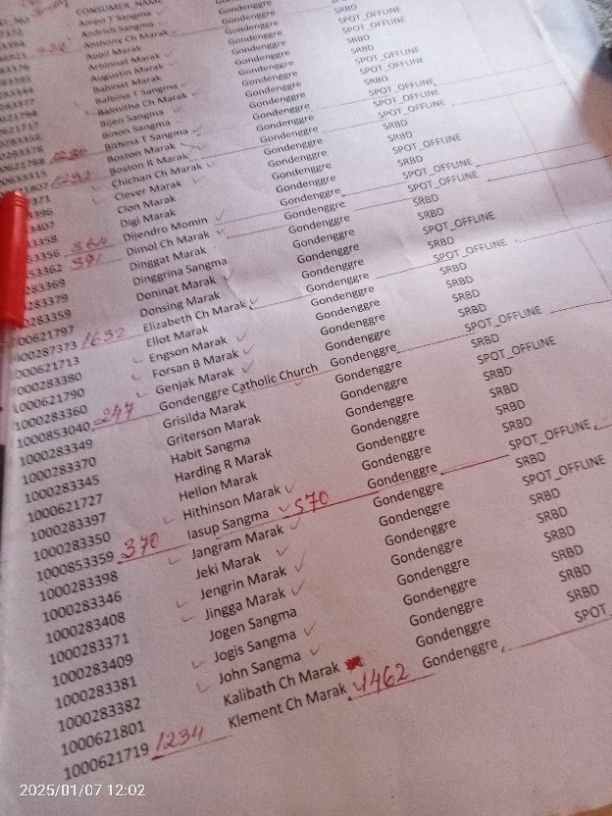 CONSUMER_NAME
Ampo T Sangma Gondenggre
Andrish Sangma Gondenggre SRBD
Anthony Ch Marak Gondenggre SPOT_OFFLINE
Apil Marak Gondenggre SRBD
Arbinnat Marak Gondenggre SPOT_OFFLINE
Augustin Marak Gondenggre SRBD
Bahinat Marak Gondenggre SRBD
Balbina T Sangma Gondenggre SRBD
Ch Marak Gondenggre SPOT_OFFLINE
Bijen Sangma Gondenggre SRBD
Binon Sangma Gondenggre SRBD
Bithina T Sangma Gondenggre SPOT_OFFLINE
1230 Boston Marak Gondenggre SPOT_OFFLINE
1807 1292 Boston R Marak Gondenggre SPOT_OFFLINE
371 Chichan Ch Marak Gondenggre SRBD
3396 Clever Marak Gondenggre SRBD
3407 Clon Marak Gondenggre SPOT_OFFLINE
3358 Digi Marak Gondenggre SRBD
3356 364 Dijendro Momin Gondenggre SPOT_OFFLINE
53362 391 Dimol Ch Marak Gondenggre SPOT_OFFLINE
283369 Dinggat Marak Gondenggre SRBD
283379 Dinggrina Sangma Gondenggre SRBD
283359 Doninat Marak Gondenggre SPOT_OFFLINE
000621797 Donsing Marak Gondenggre SRBD
1000287373 1632 Elizabeth Ch Marak ✓ Gondenggre SPOT_OFFLINE
1000621713 Eliot Marak Gondenggre SRBD
1000283380 ✓ Engson Marak ✓ Gondenggre SRBD
1000621790 ✓ Forsan B Marak ✓ Gondenggre SRBD
1000283360 ✓ Genjak Marak ✓ Gondenggre SRBD
1000853040 247 Gondenggre Catholic Church Gondenggre SPOT_OFFLINE
1000283349 Grisilda Marak Gondenggre SRBD
1000283370 Griterson Marak Gondenggre SPOT_OFFLINE
1000283345 Habit Sangma Gondenggre SRBD
1000621727 Harding R Marak Gondenggre SRBD
1000283397 Hellon Marak Gondenggre SRBD
1000283350 ✓ Hithinson Marak ✓ Gondenggre SRBD
1000853359 370 Iasup Sangma ✓ 570 Gondenggre SPOT_OFFLINE
1000283398 ✓ Jangram Marak ✓ Gondenggre SRBD
1000283346 Jeki Marak ✓ Gondenggre SPOT_OFFLINE
1000283408 ✓ Jengrin Marak ✓ Gondenggre SRBD
1000283371 ✓ Jingga Marak ✓ Gondenggre SRBD
1000283409 Jogen Sangma Gondenggre SRBD
1000283381 ✓ Jogis Sangma ✓ Gondenggre SRBD
1000283382 ✓ John Sangma ✓ Gondenggre SRBD
1000621801 Kalibath Ch Marak Gondenggre SRBD
1000621719 1234 Klement Ch Marak ✓1462 Gondenggre SPOT_
2025/01/07 12:02